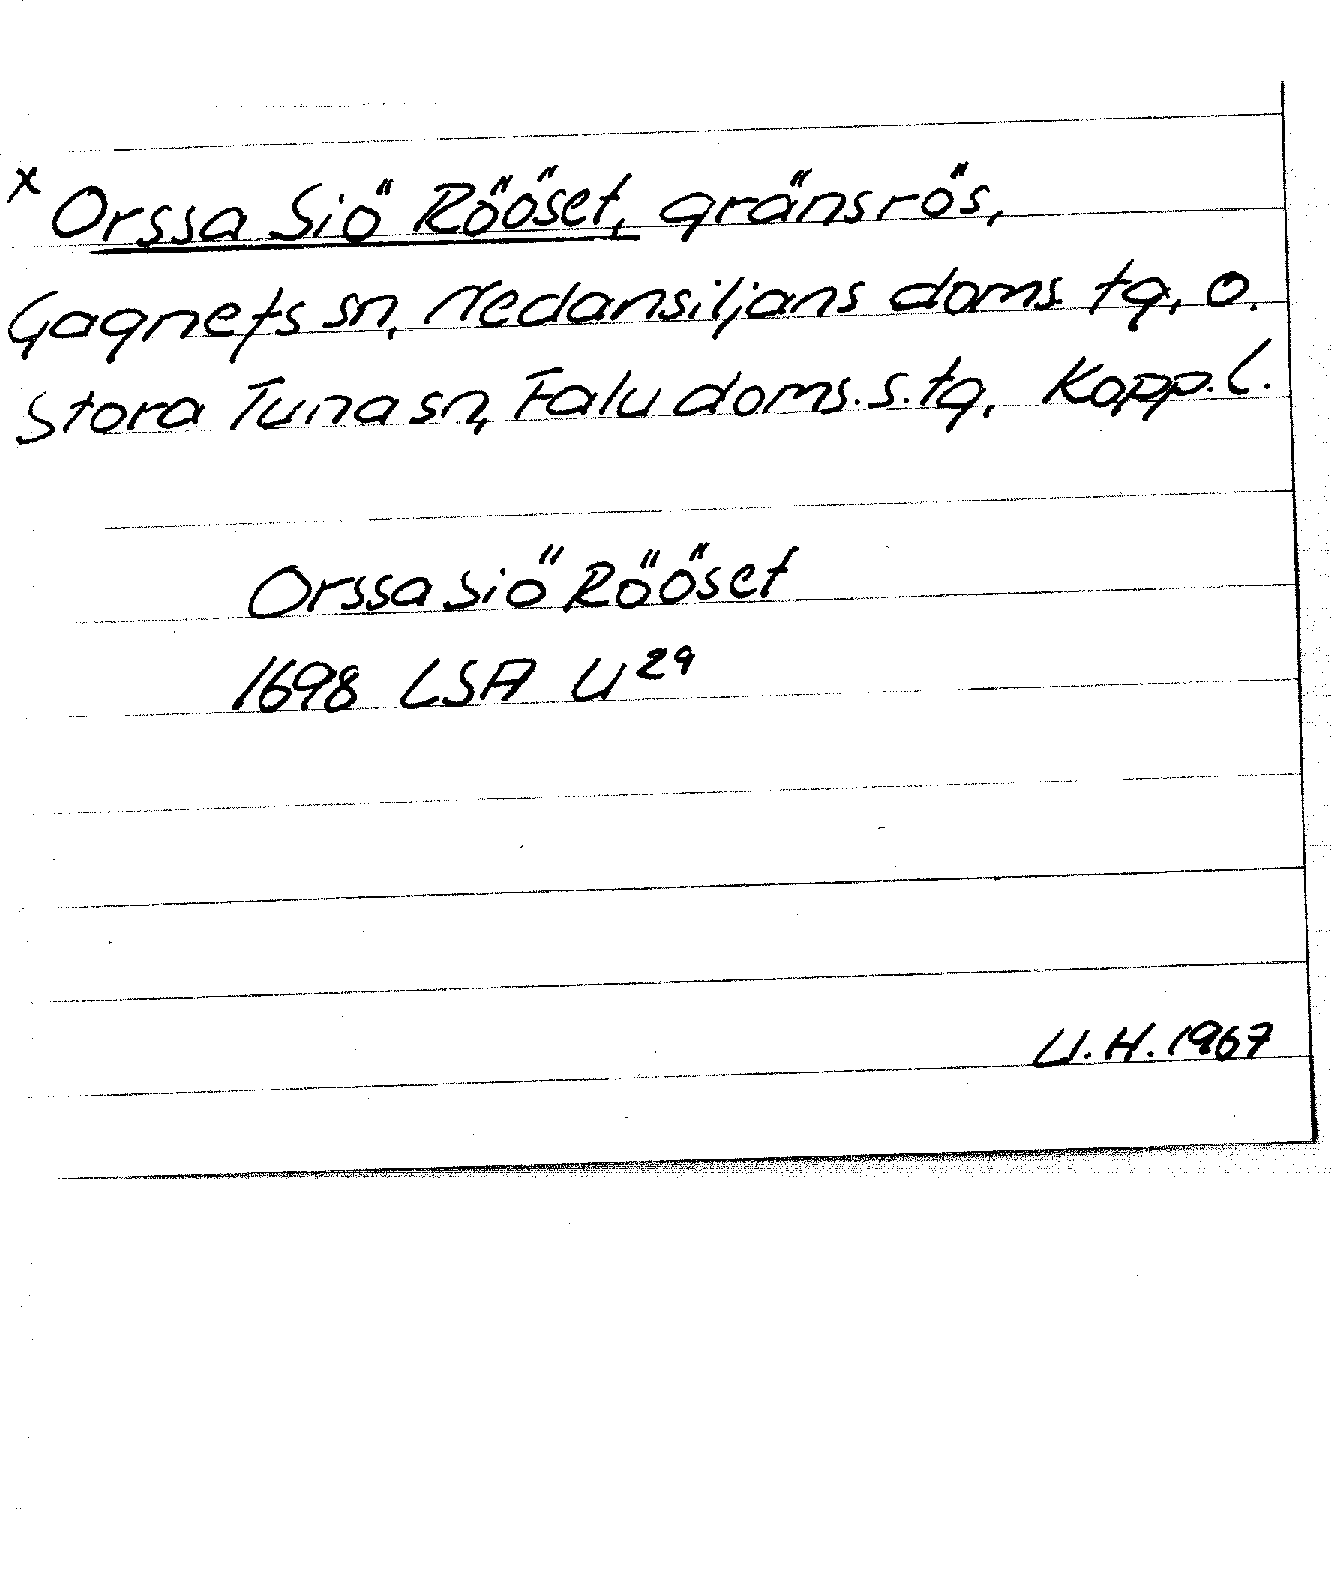 x Orssa Siö Rööset, gränsrös,
Gagnefs sn, Nedansiljans doms. tg, o.
Stora Tuna sn, Falu doms. s. tg, Kopp. l.
Orssa Siö Rööset
1698 LSA U 29
U. H. 1967